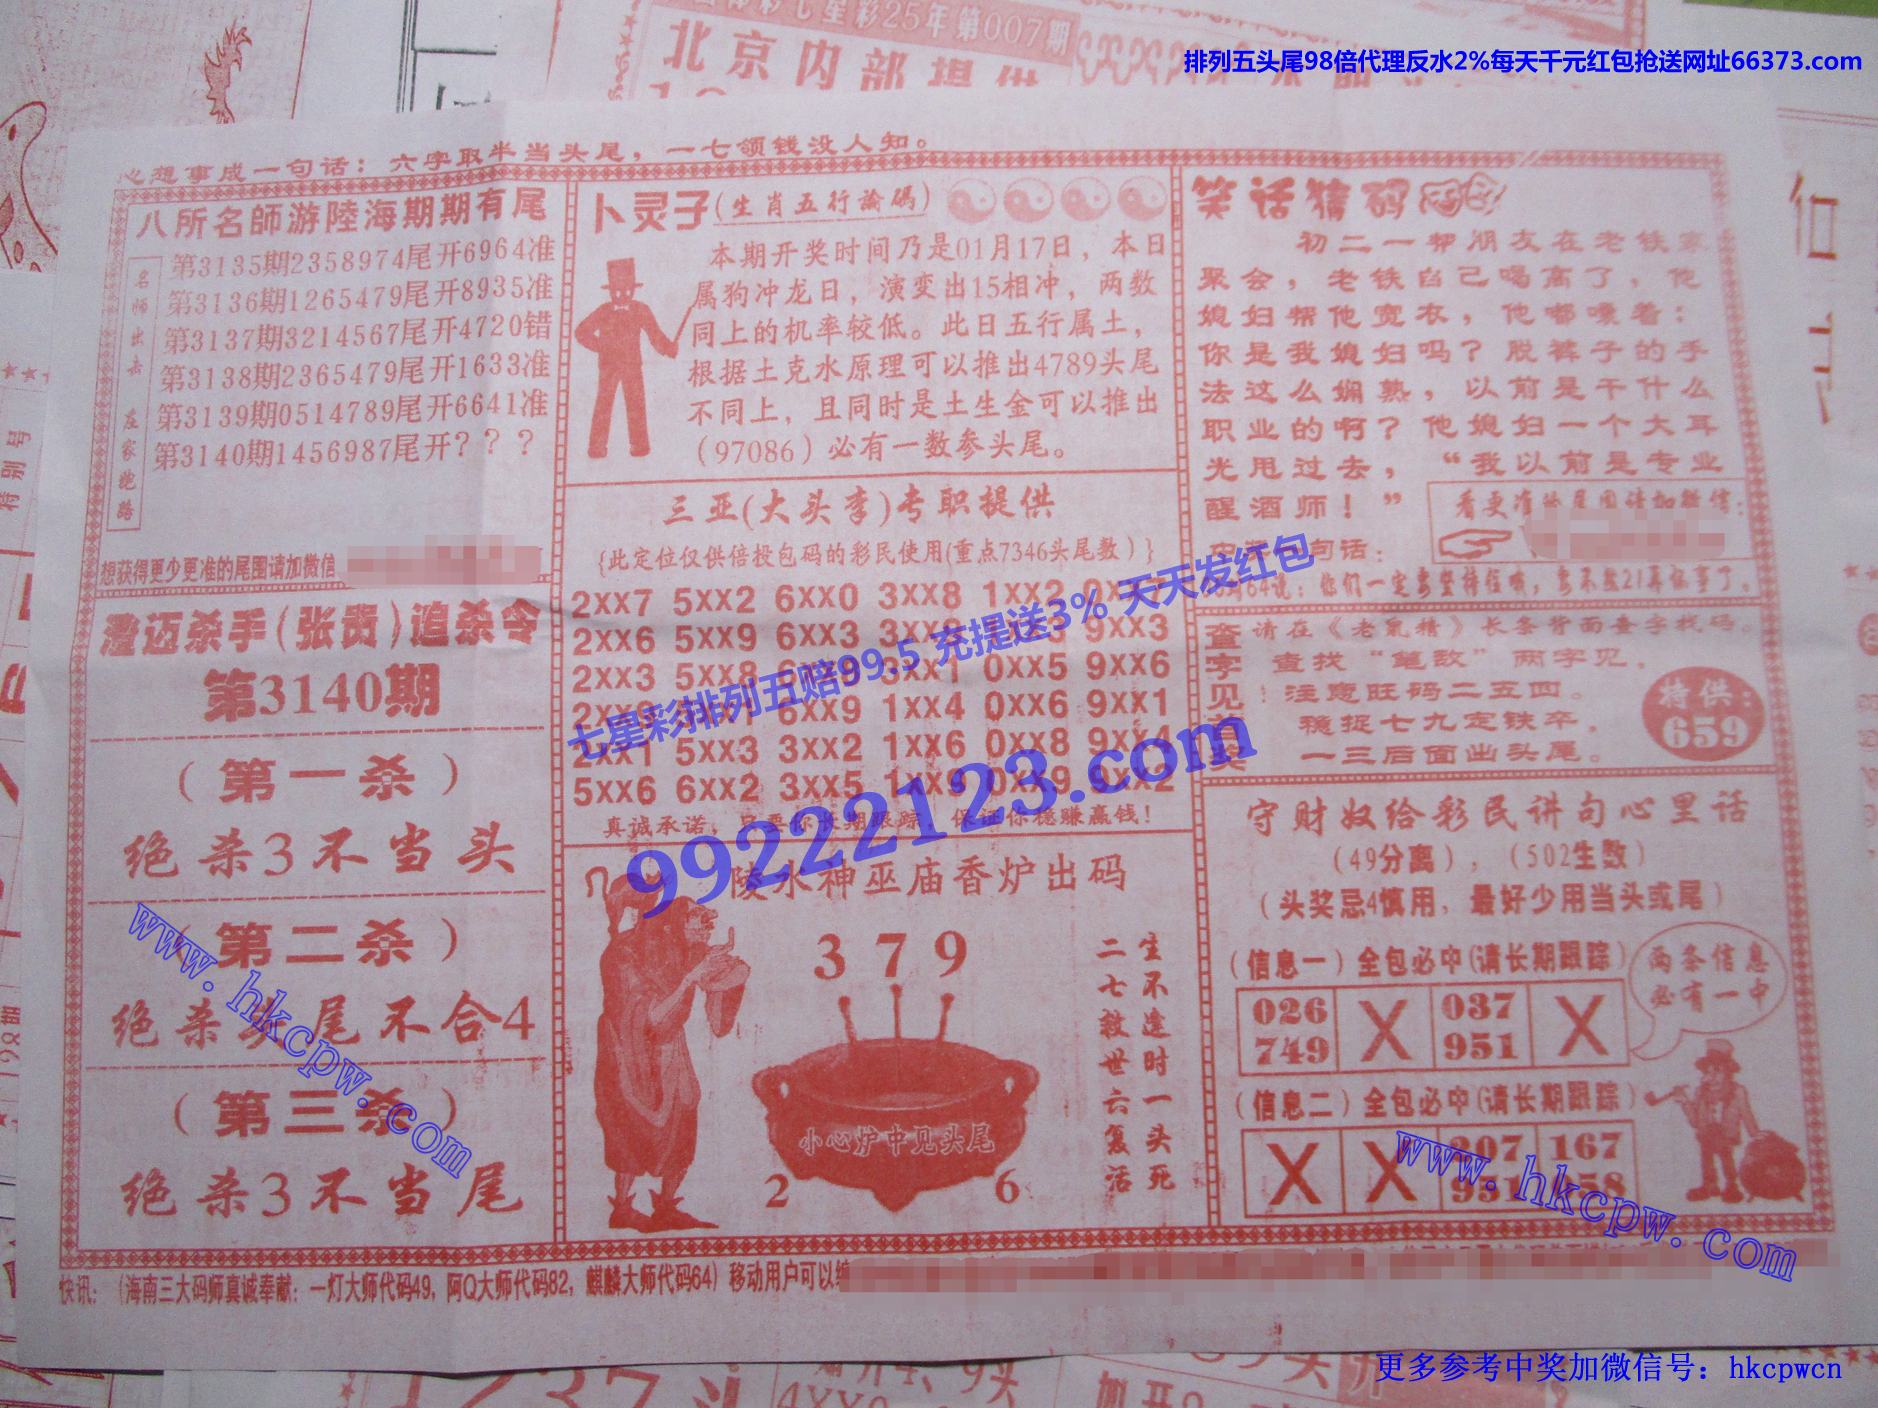 体彩七星彩25年第007期
北京内部提供
排列五头尾98倍代理反水2%每天千元红包抢送网址66373.com
心想事成一句话：六字取半当头尾，一七领钱没人知。
八所名師游陸海期期有尾
名师出击 庄家跑路
第3135期2358974尾开6964准
第3136期1265479尾开8935准
第3137期3214567尾开4720错
第3138期2365479尾开1633准
第3139期0514789尾开6641准
第3140期1456987尾开？？？
想获得更少更准的尾围请加微信
澄迈杀手(张贵)追杀令
第3140期
（第一杀）
绝杀3不当头
（第二杀）
绝杀头尾不合4
（第三杀）
绝杀3不当尾
卜灵子(生肖五行論碼)
本期开奖时间乃是01月17日，本日
属狗冲龙日，演变出15相冲，两数
同上的机率较低。此日五行属土，
根据土克水原理可以推出4789头尾
不同上，且同时是土生金可以推出
（97086）必有一数参头尾。
三亚(大头李)专职提供
{此定位仅供倍投包码的彩民使用(重点7346头尾数)}
2XX7 5XX2 6XX0 3XX8 1XX2
2XX6 5XX9 6XX3 9XX3
2XX3 5XX8 0XX5 9XX6
6XX9 1XX4 0XX6 9XX1
2XX1 5XX3 3XX2 1XX6 0XX8 9XX4
5XX6 6XX2 3XX5 1XX9 0XX9 9XX2
真诚承诺，只要你长期跟踪，保证你稳赚赢钱！
七星彩排列五赔99.5 充提送3% 天天发红包
99222123.com
陵水神巫庙香炉出码
379
小心炉中见头尾
2 6
生不逢时一头死
二七救世六复活
笑话猜码
初二一帮朋友在老铁家
聚会，老铁自己喝高了，他
媳妇帮他宽衣，他嘟囔着：
你是我媳妇吗？脱裤子的手
法这么娴熟，以前是干什么
职业的啊？他媳妇一个大耳
光甩过去，“我以前是专业
醒酒师！”
看更准的尾围请加微信：
句话：
64说：你们一定要坚持住哦，
查字见首奖
请在《老鼠精》长条背面查字找码。
查找“笔敌”两字见，
注意旺码二五四。
稳捉七九定铁卒，
一三后面出头尾。
特供：
659
守财奴给彩民讲句心里话
（49分离），（502生数）
（头奖忌4慎用，最好少用当头或尾）
（信息一）全包必中(请长期跟踪)
026 X 037 X
749 951
两条信息
必有一中
（信息二）全包必中(请长期跟踪)
X X 207 167
951 458
快讯：（海南三大码师真诚奉献：一灯大师代码49，阿Q大师代码82，麒麟大师代码64）移动用户可以编
www.hkcpw.com
www.hkcpw.com
更多参考中奖加微信号：hkcpwcn